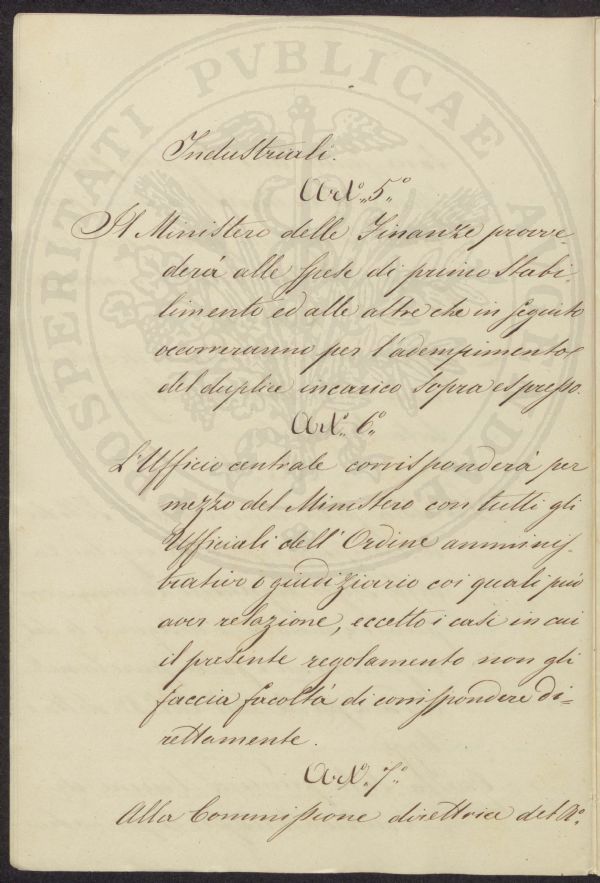 PROSPERITATI PVBLICAE AVGENDAE
Industriali.
Art.º 5º
Il Ministero delle Finanze provve-
derà alle spese di primo stabi-
limento ed alle altre che in seguito
occorreranno per l'adempimento
del duplice incarico sopra espresso.
Art.º 6º
L'Ufficio centrale corrisponderà per
mezzo del Ministero con tutti gli
Ufficiali dell'Ordine amminis-
trativo o giudiziario coi quali può
aver relazione, eccetto i casi in cui
il presente regolamento non gli
faccia facoltà di corrispondere di=
rettamente.
Art.º 7º
Alla Commissione direttrice del R.º